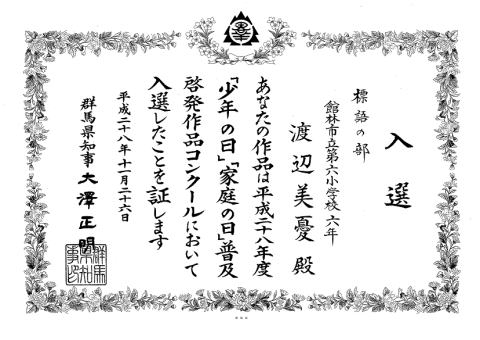 入選
標語の部
館林市立第六小学校 六年
渡辺美憂 殿
あなたの作品は平成二十八年度
「少年の日」「家庭の日」普及
啓発作品コンクールにおいて
入選したことを証します
平成二十八年十一月二十六日
群馬県知事 大澤正明
群馬
県知
事印